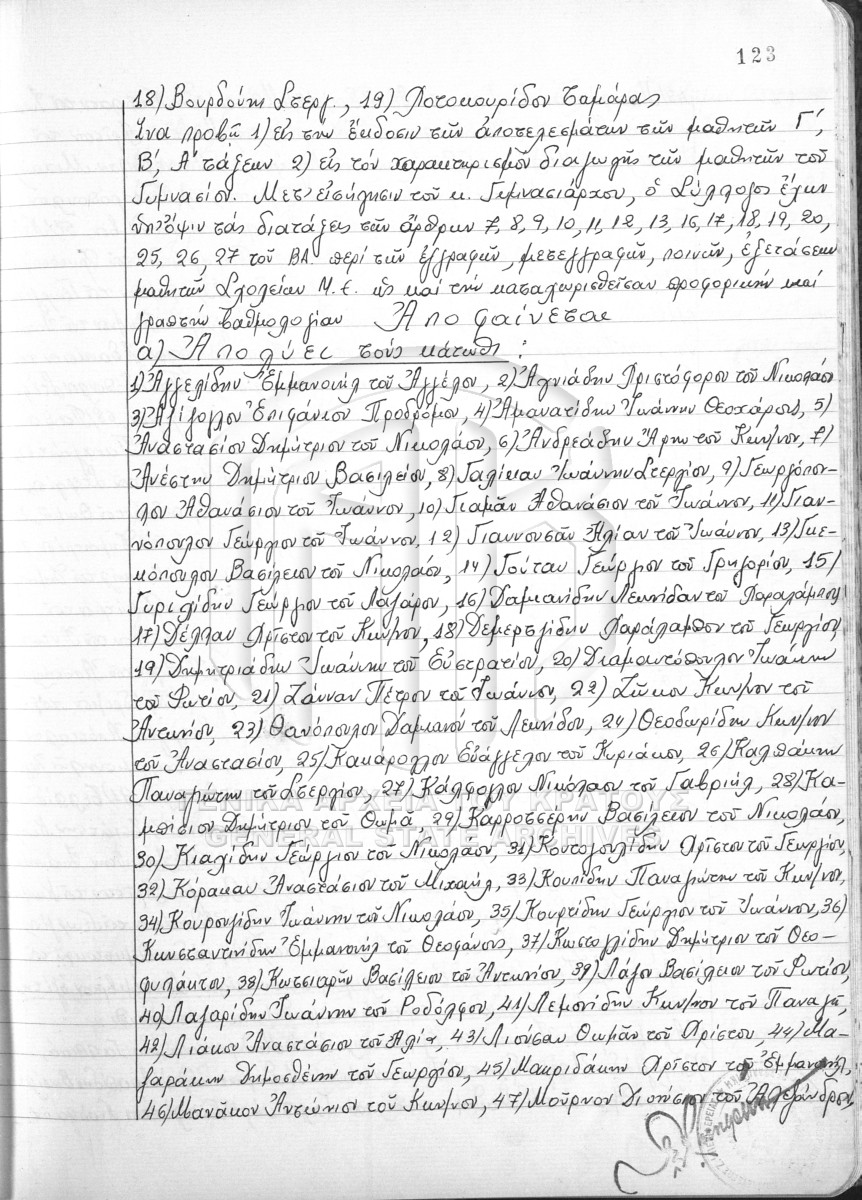 123
18) Βουρδούνης Στεργ., 19) Ποτοκουρίδου Ταμάρας
Ἵνα προβῇ 1) εἰς τὴν ἔκδοσιν τῶν ἀποτελεσμάτων τῶν μαθητῶν Γ΄,
Β΄, Α΄ τάξεων 2) εἰς τὸν χαρακτηρισμὸν διαγωγῆς τῶν μαθητῶν τοῦ
Γυμνασίου. Μετ' εἰσήγησιν τοῦ κ. Γυμνασιάρχου, ὁ Σύλλογος ἔχων
ὑπ' ὄψιν τὰς διατάξεις τῶν ἄρθρων 7, 8, 9, 10, 11, 12, 13, 16, 17, 18, 19, 20,
25, 26, 27 τοῦ ΒΔ. περὶ τῶν ἐγγραφῶν, μετεγγραφῶν, ποινῶν, ἐξετάσεων
μαθητῶν Σχολείων Μ.Ε. ὡς καὶ τὴν καταχωρισθεῖσαν προφορικὴν καὶ
γραπτὴν βαθμολογίαν Ἀποφαίνεται
α) Ἀπολύει τοὺς κάτωθι :
1) Ἀγγελίδην Ἐμμανουὴλ τοῦ Ἀγγέλου, 2) Ἀχνιάδην Χριστόφορον τοῦ Νικολάου
3) Ἀϊβάζογλου Ἐπιφάνιον Προδρόμου, 4) Ἀμανατίδην Ἰωάννην Θεοχάρους, 5)
Ἀναστασίου Δημήτριον τοῦ Νικολάου, 6) Ἀνδρεάδην Ἄρην τοῦ Κων/νου, 7)
Ἀνέστην Δημήτριον Βασιλείου, 8) Γαλίκαν Ἰωάννην Στεργίου, 9) Γεωργόπου-
λον Ἀθανάσιον τοῦ Ἰωάννου, 10) Γιαμᾶν Ἀθανάσιον τοῦ Ἰωάννου, 11) Γιαν-
νόπουλον Γεώργιον τοῦ Ἰωάννου, 12) Γιαννουσᾶν Ἠλίαν τοῦ Ἰωάννου, 13) Γκε-
κόπουλον Βασίλειον τοῦ Νικολάου, 14) Γούταν Γεώργιον τοῦ Γρηγορίου, 15)
Γυριχίδην Γεώργιον τοῦ Λαζάρου, 16) Δαμιανίδην Λεωνίδαν τοῦ Χαραλάμπους
17) Δέλλαν Χρίστον τοῦ Κων/νου, 18) Δεμερτζίδην Χαράλαμπον τοῦ Γεωργίου
19) Δημητριάδην Ἰωάννην τοῦ Εὐστρατίου, 20) Διαμαντόπουλον Ἰωάννην
τοῦ Φωτίου, 21) Ζάνναν Πέτρον τοῦ Ἰωάννου, 22) Ζῶκον Κων/νον τοῦ
Ἀντωνίου, 23) Θανόπουλον Δαμιανὸν τοῦ Λεωνίδου, 24) Θεοδωρίδην Κων/νον
τοῦ Ἀναστασίου, 25) Κακάρογλου Εὐάγγελον τοῦ Κυριάκου, 26) Καλπάκην
Παναγιώτην τοῦ Στεργίου, 27) Κάλφογλου Νικόλαον τοῦ Γαβριήλ, 28) Κα-
μπίσιον Δημήτριον τοῦ Θωμᾶ 29) Καρροτσέρην Βασίλειον τοῦ Νικολάου,
ΓΕΝΙΚΑ ΑΡΧΕΙΑ ΤΟΥ ΚΡΑΤΟΥΣ
GENERAL STATE ARCHIVES
30) Κιαχίδην Γεώργιον τοῦ Νικολάου, 31) Κοντογουλίδην Χρίστον τοῦ Γεωργίου,
32) Κόρακαν Ἀναστάσιον τοῦ Μιχαήλ, 33) Κουπίδην Παναγιώτην τοῦ Κων/νου,
34) Κουρουζίδην Ἰωάννην τοῦ Νικολάου, 35) Κουρτίδην Γεώργιον τοῦ Ἰωάννου, 36)
Κωνσταντινίδην Ἐμμανουὴλ τοῦ Θεοφάνους, 37) Κωστογλίδην Δημήτριον τοῦ Θεο-
φυλάκτου, 38) Κωτσιαρῆν Βασίλειον τοῦ Ἀντωνίου, 39) Λάζον Βασίλειον τοῦ Φωτίου,
40) Λαζαρίδην Ἰωάννην τοῦ Ροδόλφου, 41) Λεμονίδην Κων/νον τοῦ Παναγ.,
42) Λιάκον Ἀναστάσιον τοῦ Ἠλία, 43) Λιούσαν Θωμᾶν τοῦ Χρίστου, 44) Μα-
ζαράκην Δημοσθένην τοῦ Γεωργίου, 45) Μακριδάκην Χρίστον τοῦ Ἐμμανουήλ,
46) Μανάκον Ἀντώνιον τοῦ Κων/νου, 47) Μοῦρνον Διονύσιον τοῦ Ἀλεξάνδρου,